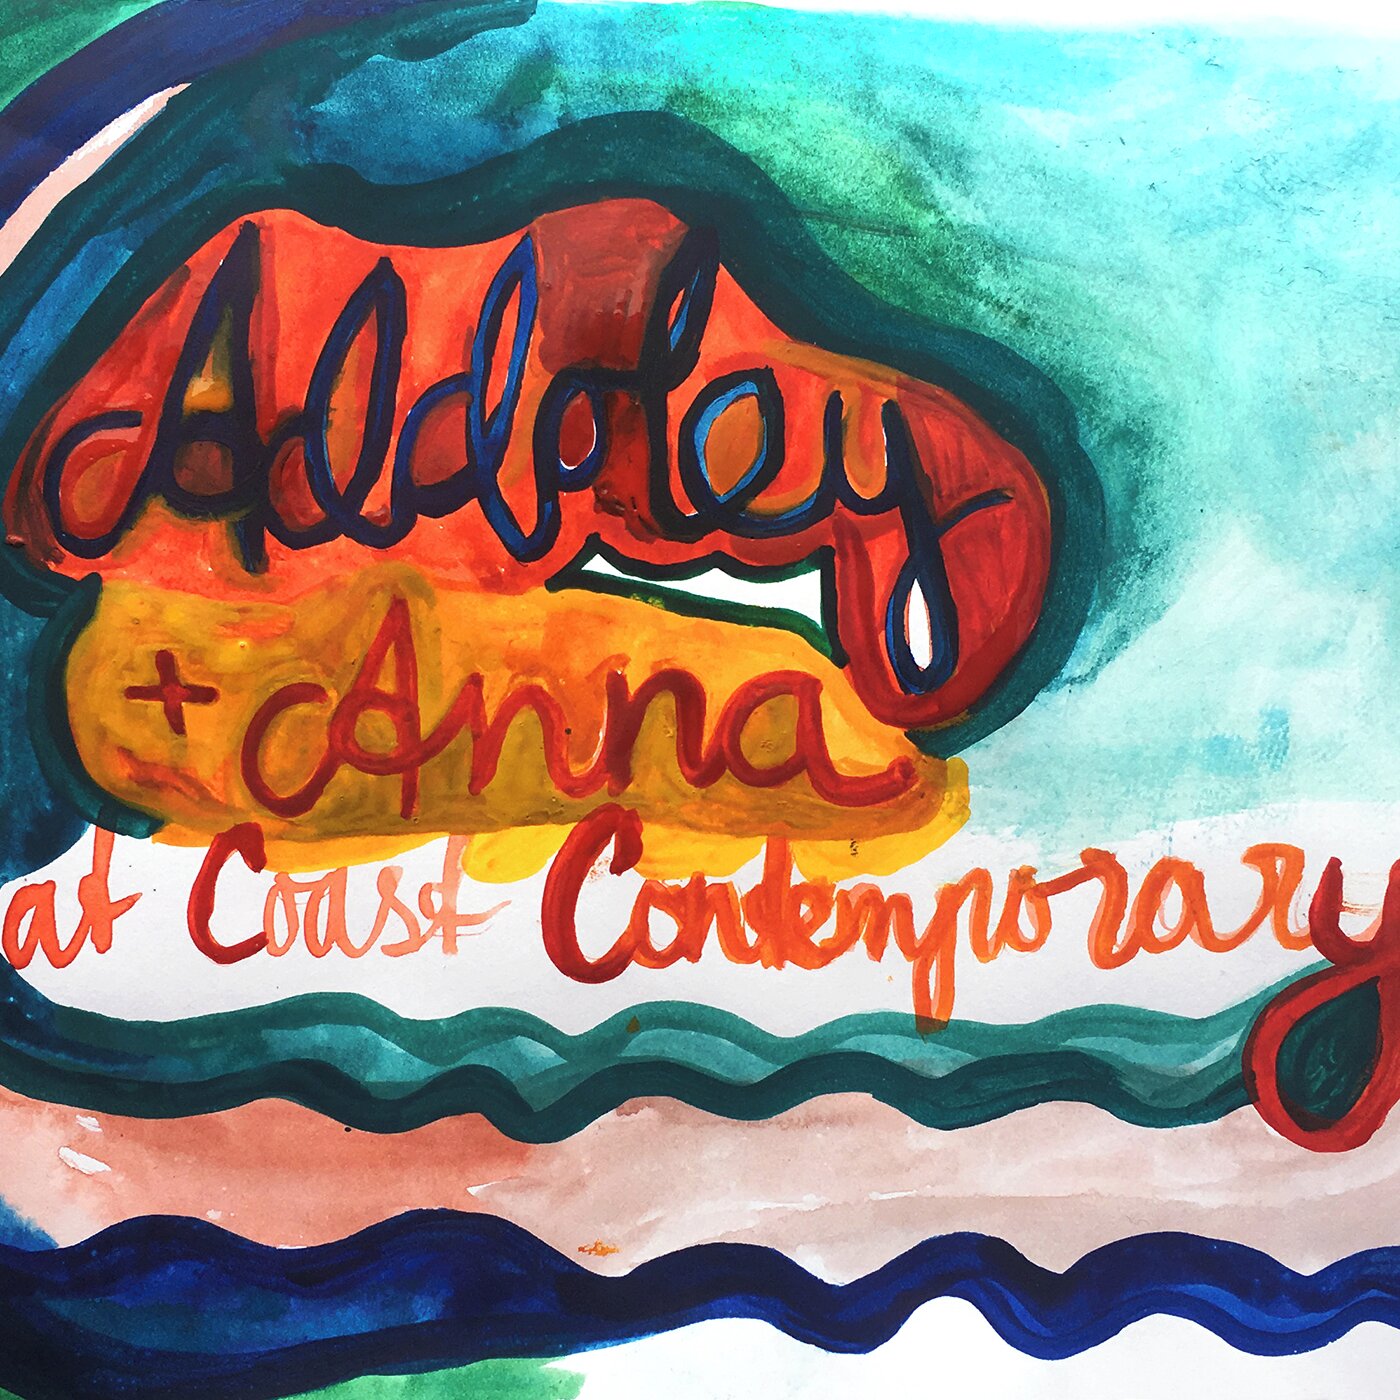 Addoley
+ Anna
at Coast Contemporary